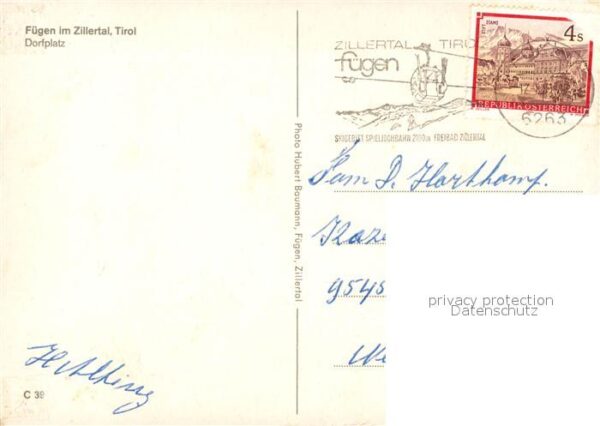 Fügen im Zillertal, Tirol
Dorfplatz
ZILLERTAL TIROL
fügen
SKIGEBIET SPIELJOCHBAHN 2100m FREIBAD ZILLERTAL
STIFT STAMS
4 S
REPUBLIK ÖSTERREICH
6263
Photo Hubert Baumann, Fügen, Zillertal
Fam D. Harthamp.
9545
privacy protection
Datenschutz
C 39